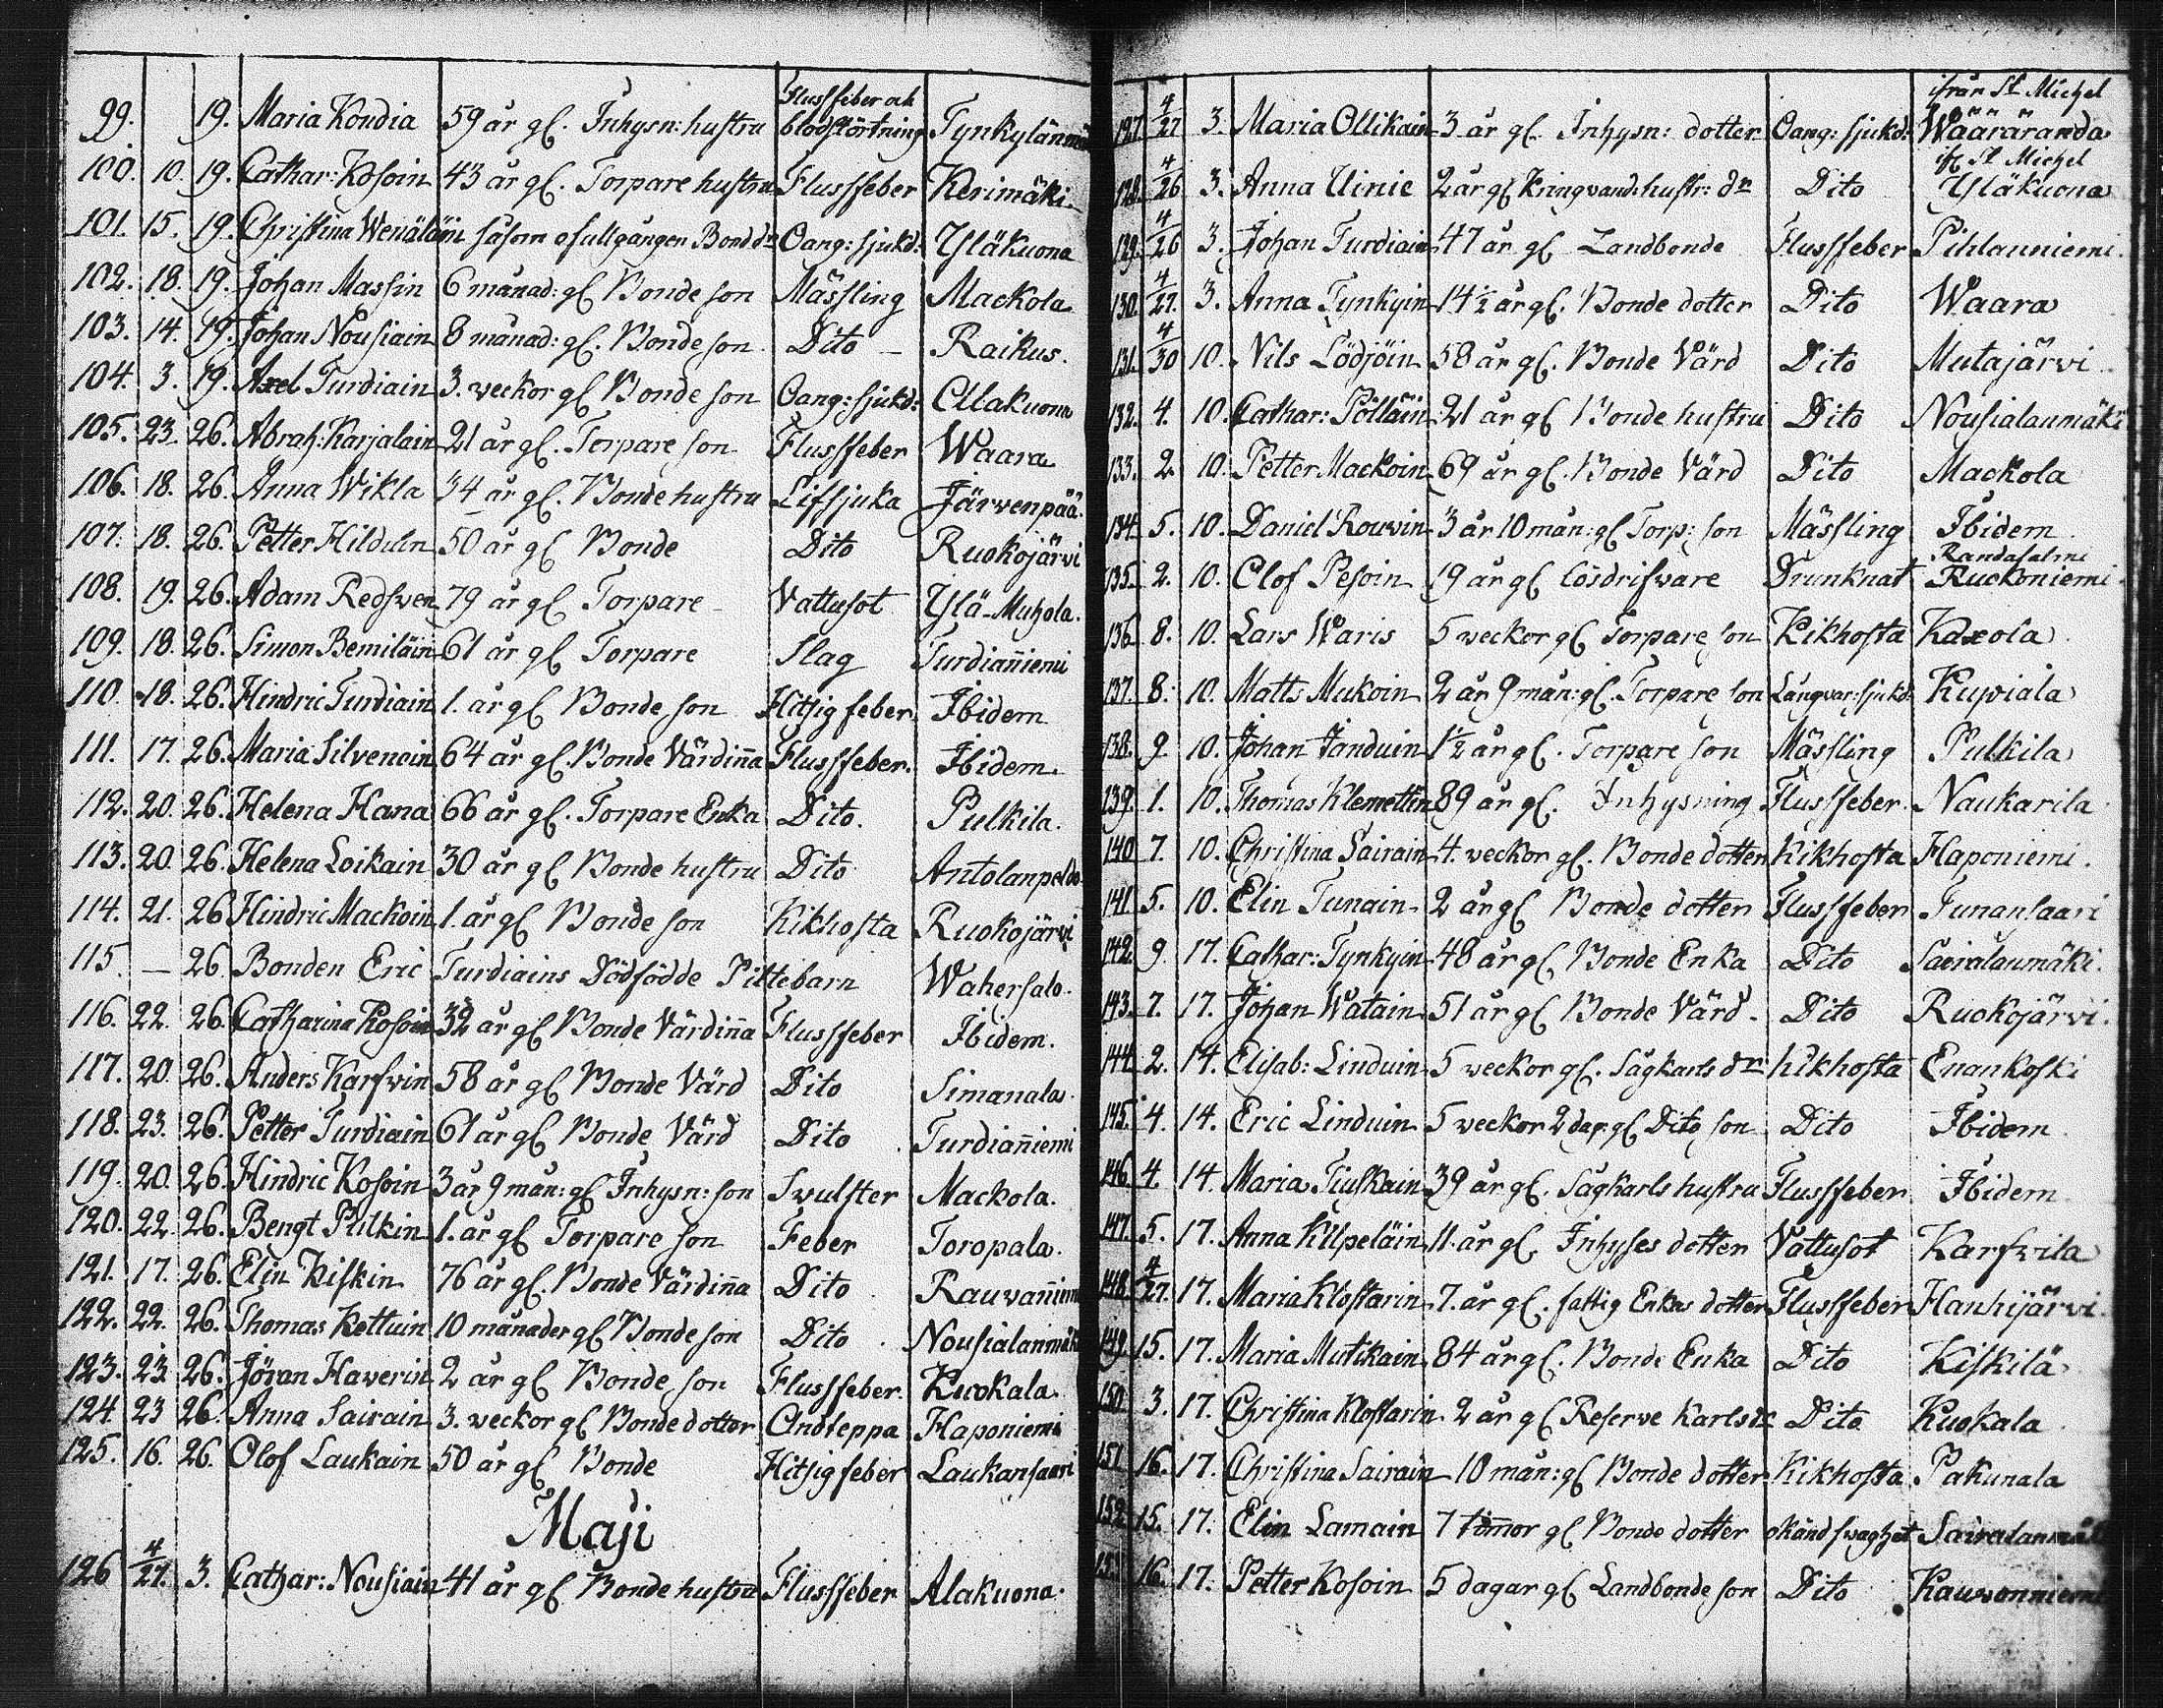 99. 19. Maria Kondia 59 år gl. Inhysn: hustru Flussfeber och blodstörtning Tynkylänmä
100. 10. 19. Cathar: Kosoin 43 år gl. Torpare hustru Flussfeber Kerimäki
101. 15. 19. Christina Wenäläin såsom ofullgången Bond dr Oang: sjukd: Yläkuona
102. 18. 19. Johan Massin 6 månad: gl Bonde son Mässling Mackola
103. 14. 19. Johan Nousiain 8 månad: gl. Bonde son Dito Raikus.
104. 3. 19. Axel Turdiain 3. veckor gl Bonde son Oang: sjukd: Allakuona
105. 23. 26. Abrah: Karjalain 21 år gl. Torpare son Flussfeber Waara
106. 18. 26. Anna Wikla 34 år gl. Bonde hustru Lifsjuka Järwenpää.
107. 18. 26. Petter Hilduln 50 år gl Bonde Dito Ruokojärvi
108. 19. 26. Adam Redswen 79 år gl Torpare Vattusot Ylä-Muhola.
109. 18. 26. Simon Bemiläin 61 år gl Torpare Slag Turdianniemi
110. 18. 26. Hindric Turdiain 1. år gl Bonde son Hitsig feber Ibidem
111. 17. 26. Maria Silvenoin 64 år gl. Bonde Värdinna Flussfeber. Ibidem
112. 20. 26. Helena Hana 66 år gl. Torpare Enka Dito. Pulkila.
113. 20. 26. Helena Loikain 30 år gl Bonde hustru Dito Antolanpeldo
114. 21. 26 Hindric Mackoin 1. år gl Bonde son Kikhosta Ruokojärvi
115. — 26. Bonden Eric Turdiains Dödfödde Piltebarn Wahersalo.
116. 22. 26. Catharina Kosoin 32 år gl Bonde Värdinna Flussfeber Ibidem.
117. 20. 26. Anders Karfwin 58 år gl Bonde Värd Dito Simanala.
118. 23. 26. Petter Turdiain 61 år gl Bonde Värd Dito Turdianniemi
119. 20. 26. Hindric Kosoin 3 år 9 mån: gl Inhysn: son Swulster Mackola.
120. 22. 26. Bengt Pulkin 1. år gl Torpare son Feber Toropala.
121. 17. 26. Elin Kiskin 76 år gl. Bonde Värdinna Dito Rauvanniemi
122. 22. 26. Thomas Kettuin 10 månader gl Bonde son Dito Nousialanmäki
123. 23. 26. Jöran Haverin 2 år gl Bonde son Flussfeber. Kuokala.
124. 23 26. Anna Sairain 3. veckor gl Bonde dotter Andteppa Haponiemi
125. 16. 26. Olof Laukain 50 år gl Bonde Hitsig feber Laukansaari
Maji
126 4/27. 3. Cathar: Nousiain 41 år gl Bonde hustru Flussfeber Alakuona.
127. 4/27 3. Maria Ollikain 3 år gl. Inhysn: dotter Oang: sjukd: ifrån St Michel Wääräranda
128. 4/26 3. Anna Uinie 2 år gl Kringvand: hustr: dr Dito ifr St Michel Yläkuona
129. 4/26 3. Johan Turdiain 47 år gl Landbonde Flussfeber Pihlanniemi.
130. 4/27. 3. Anna Tynkyin 14 1/2 år gl. Bonde dotter Dito Waara
131. 4/30 10. Nils Lödjöin 58 år gl. Bonde Värd Dito Mutajärvi
132. 4. 10. Cathar: Pölläin 21 år gl Bonde hustru Dito Nousialanmäki
133. 2. 10. Petter Mackoin 69 år gl. Bonde Värd Dito Mackola
134. 5. 10. Daniel Rouvin 3 år 10 mån: gl Torp: son Mässling Ibidem
135. 2. 10. Olof Pesoin 19 år gl lösdrifvare Drunknat Randasalmi Ruokoniemi
136. 8. 10. Lars Waris 5 weckor gl Torpare son Kikhosta Kaxola
137. 8. 10. Matts Mukoin 2 år 9 mån: gl. Torpare son Långvar: sjukd: Kuwiala
138. 9 10. Johan Janduin 1 1/2 år gl. Torpare son Mässling Pulkila
139. 1. 10. Thomas Klemettin 89 år gl. Inhysning Flussfeber. Naukarila
140. 7. 10. Christina Sairain 4. veckor gl. Bonde dotter Kikhosta Haponiemi.
141. 5. 10. Elin Tunain 2 år gl Bonde dotter Flussfeber Tunansaari
142. 9. 17. Cathar: Tynkyin 48 år gl Bonde Enka Dito Sairalanmäki.
143. 7. 17. Johan Watain 51 år gl Bonde Värd Dito Ruokojärvi.
144. 2. 14. Elisab: Linduin 5 weckor gl. Sågkarls dr kikhosta Enankoski
145. 4. 14. Eric Linduin 5 weckor 2 dag. gl Dito son Dito Ibidem
146. 4. 14. Maria Tiuskain 39 år gl. Sågkarls hustru Flussfeber Ibidem
147. 5. 17. Anna Kilpeläin 11. år gl. Inhyses dotter Vattusot Karfvila
148. 4/27. 17. Maria Klostarin 7. år gl. fattig Enkas dotter Flussfeber Hanhijärvi
149 15. 17. Maria Mutikain 84 år gl. Bonde Enka Dito Kiskilä
150 3. 17. Christina Klostarin 2 år gl Reserve Karls dr Dito Kuokala
151 16. 17. Christina Sairain 10 mån: gl Bonde dotter Kikhosta Pakunala
152. 15. 17. Elin Lamain 7 timmor gl Bonde dotter okänd swaghet Sairalanmäk
153. 16. 17. Petter Kosoin 5 dagar gl Landbonde son Dito Kauvonniemi